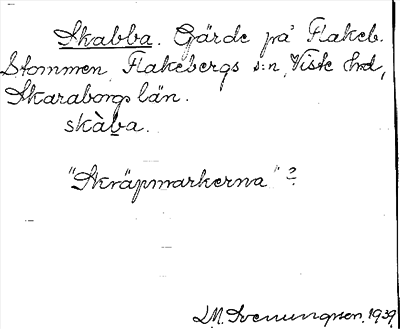 Skabba. Gärde på Flakeb.
Stommen, Flakebergs s:n, Viste hrd,
Skaraborgs län.
skàba.
"Skräpmarkerna" ?
M. Svenungson. 1939.